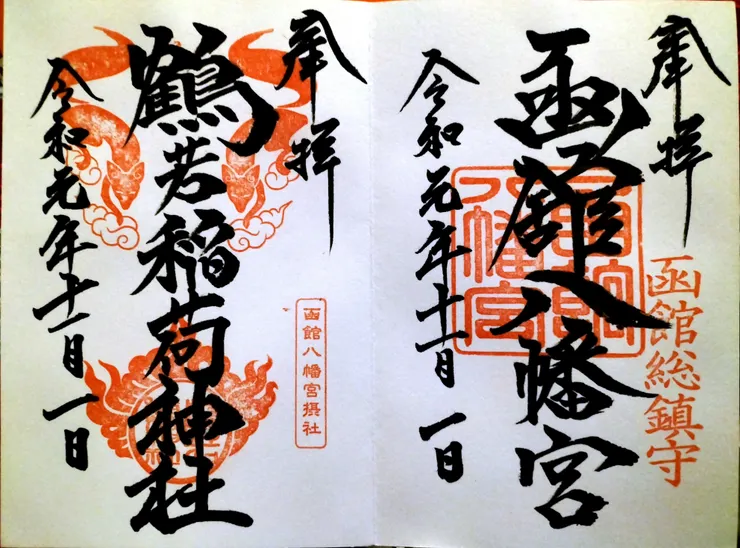 奉拝
函館総鎮守
函館八幡宮
令和元年十一月一日
奉拝
函館八幡宮摂社
鶴若稲荷神社
令和元年十一月一日